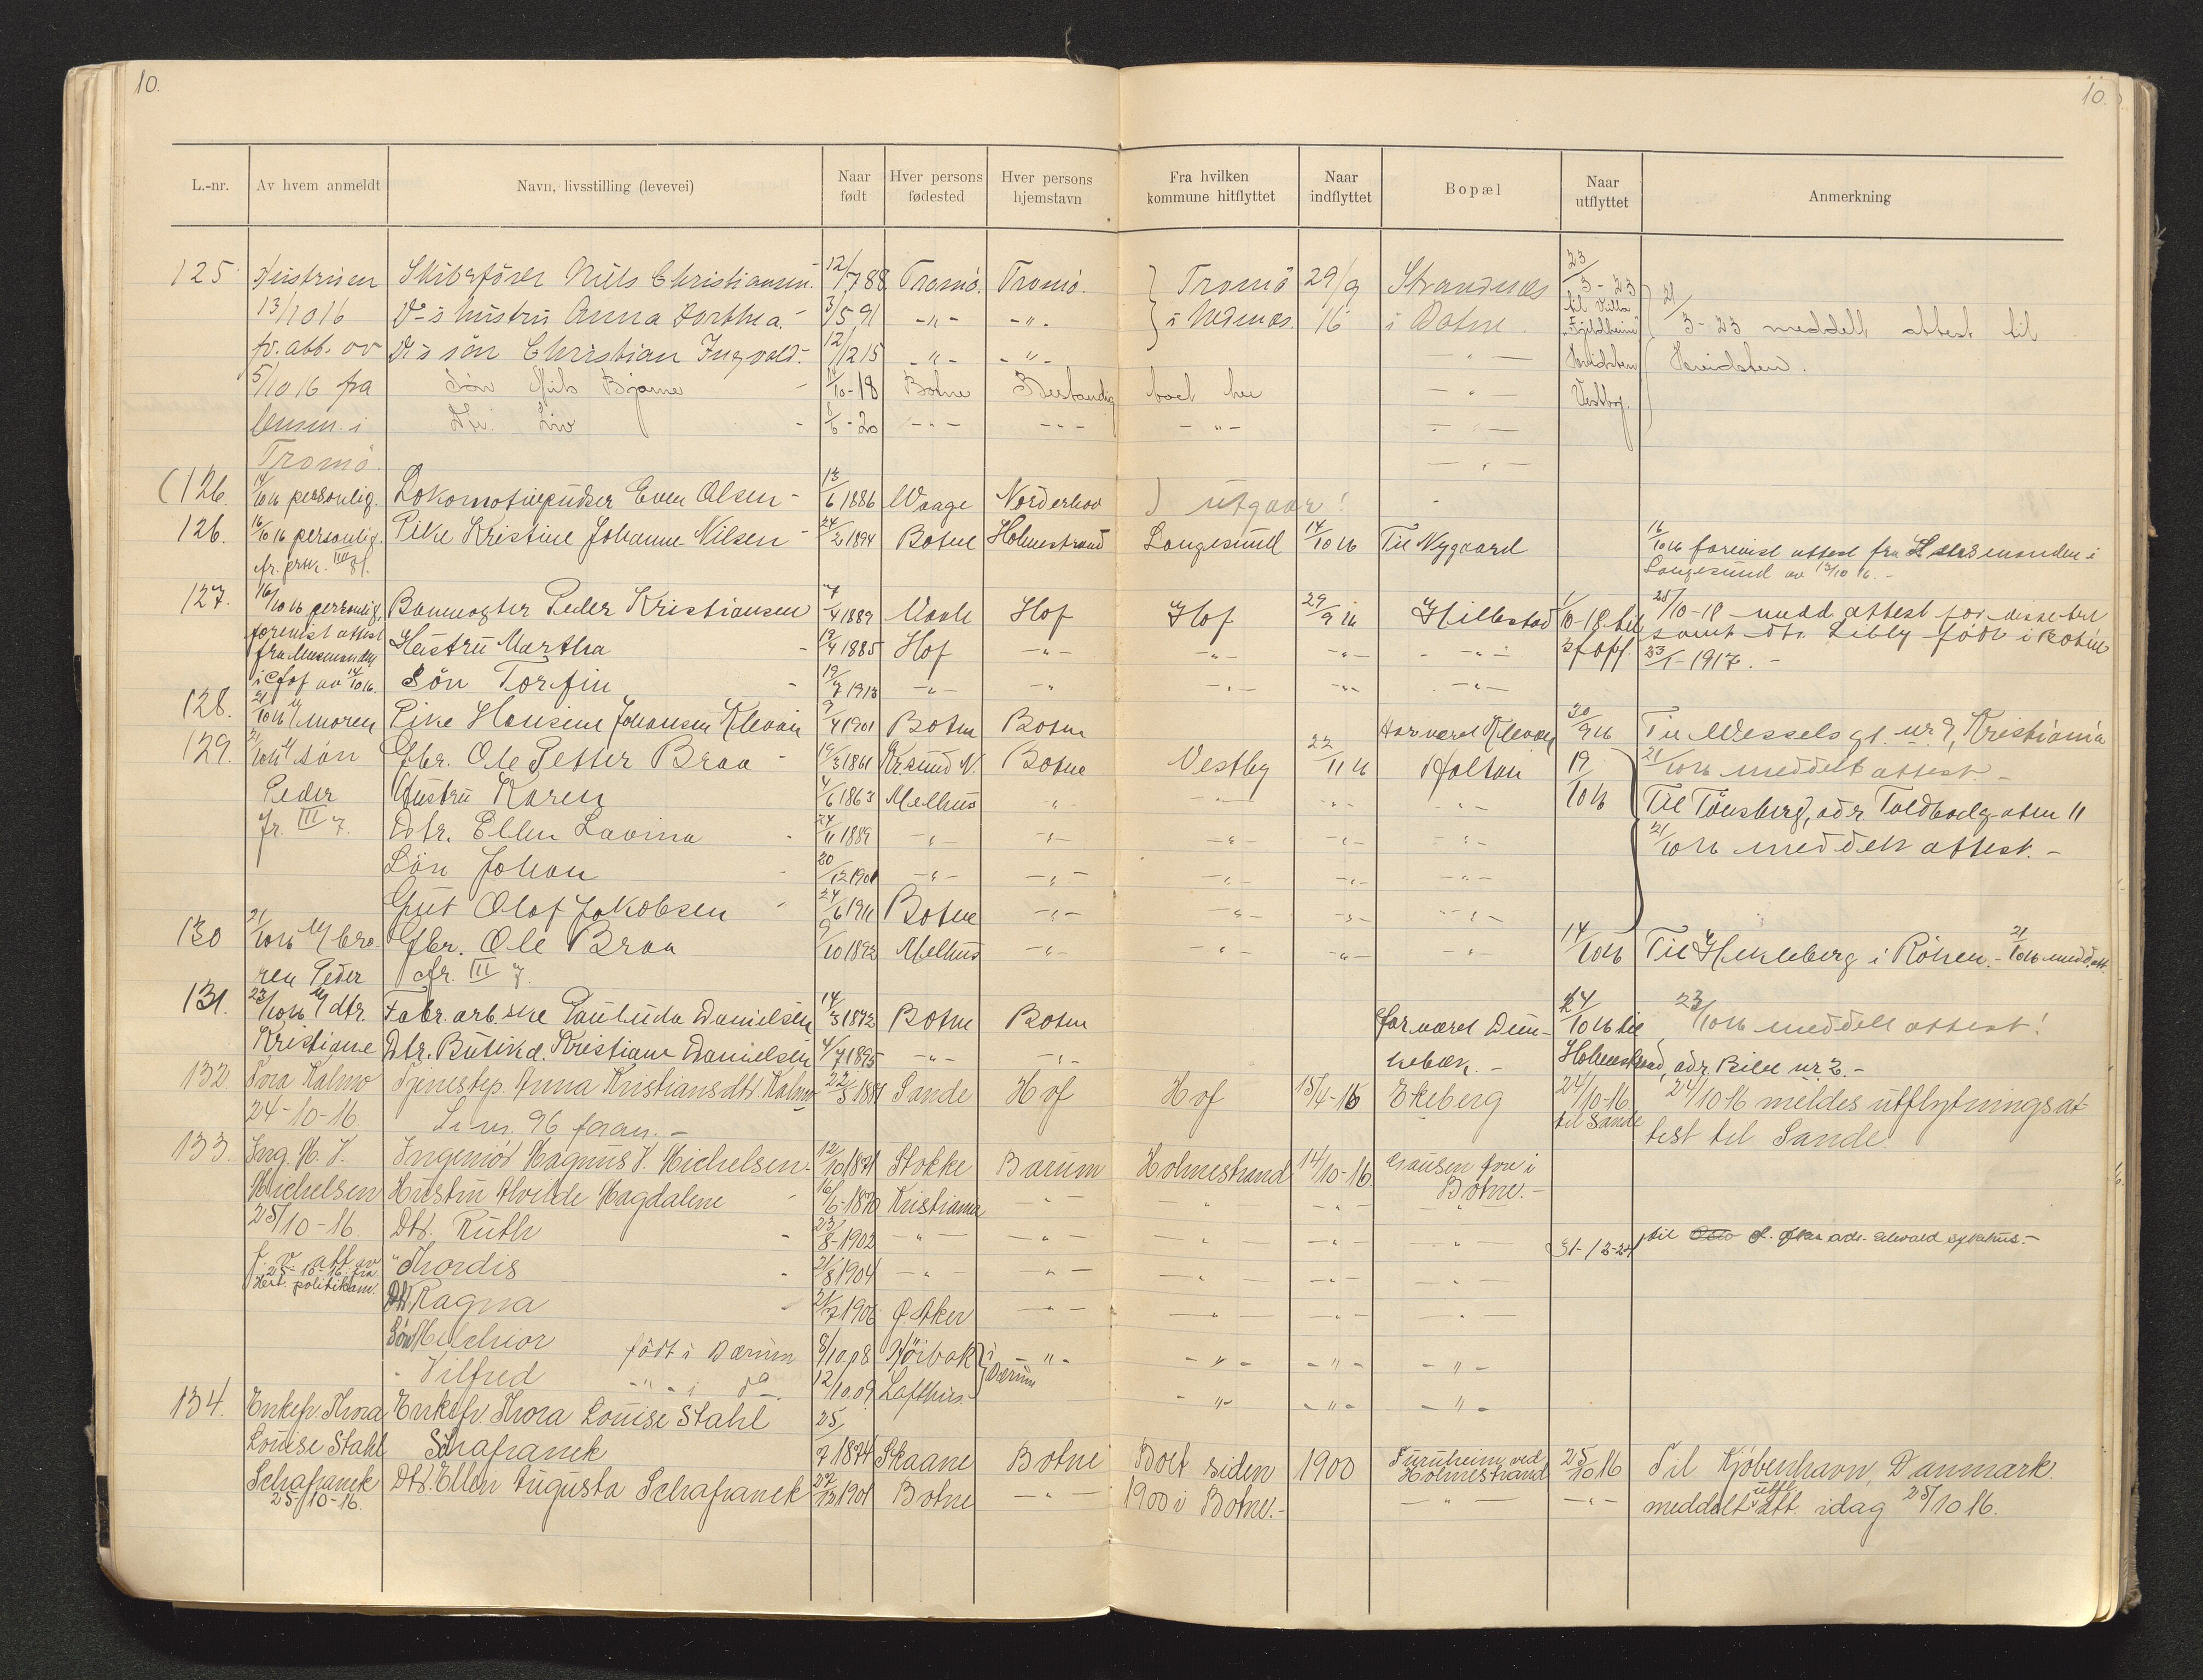 10.
10.
L.-nr. Av hvem anmeldt Navn, livsstilling (levevei) Naar født Hver persons fødested Hver persons hjemstavn Fra hvilken kommune hitflyttet Naar indflyttet Bopæl Naar utflyttet Anmerkning
125 Hustruen Skibsförer Nils Christiansen 12/7 88 Tromö. Tromö. Tromö 29/9 Strandnes 23/3-23
13/10 16 Do's hustru Anna Dorthea. 3/5 91 -"- -"- i Nedenes. 16 i Botne til Villa 21/3-23 meddelt attest til
fr. att. av Do's sön Christian Ingvald. 12/12 15 -"- -"- -"- "Fjeldheim" Hvidsten.
5/10 16 fra Sön Nils Bjarne 10-18 Botne Bestandig boet her -"- Hvidsten
lensm. i Dtr. Liv 6-20 -"- -"- -"- -"- Vestby.
Tromö. -"-
(126. 14/10 16 personlig. Lokomotivpudser Even Olsen - 13/6 1886 Waage Norderhov ) utgaar!
126. 16/10 16 personlig. Pike Kristine Johanne Nilsen - 24/2 1894 Botne Holmestrand Langesund 14/10 16 Til Nygaard 16/10 16 forevist attest fra Lensmanden i
Langesund av 13/10 16. -
127. 16/10 16 personlig, Banevogter Peder Kristiansen 7/4 1889 Hof Hof 29/9 16 Hillestad 1/10-18 til 25/10-18 - medd. attest for disse
forevist attest Hustru Martha 19/4 1885 Hof -"- -"- -"- -"- samt dtr. födt i Botne
i Hof av 14/10 16. Sön Torfin 19/7 1913 -"- -"- -"- -"- -"- /1-1917. -
128. 21/10 16 moren Pike Hansine Johansen Klevan 9/4 1901 Botne Botne Har været Klevan 30/9 16 Til Wessels gt. nr 9, Kristiania
129. 21/10 16 sön Gbr. Ole Petter Braa - 19/3 1861 Kr.sund N. Botne Vestby 22/11 16 Holtan 19/10 16 21/10 16 meddelt attest. -
Peder Hustru Karen 4/6 1863 Melhus -"- -"- -"- -"- Til Tönsberg, adr. Toldbodgaten 11
fr. III 7. Dtr. Ellen Lovina 24/11 1889 -"- -"- -"- -"- -"- 21/10 16 meddelt attest. -
Sön Johan 30/12 1901 -"- -"- -"- -"- -"-
Gut Olaf Jakobsen 24/6 1911 Botne -"- -"- -"- -"-
130 21/10 16 bro- Gbr. Ole Braa 9/10 1892 Melhus -"- -"- -"- -"- 14/10 16 Til Hekleberg i Röken. - 21/10 16 medd. att.
ren Peder fr. III 7.
131. 23/10 16 dtr. Fabr.arb.ske Paulinda Danielsen 14/3 1872 Botne Botne har været Dun- 24/10 16 til 23/10 16 meddelt attest!
Kristiane Dtr. Butikd. Kristiane Danielsen 4/7 1895 -"- -"- kebæk. - Holmestrand, adr. nr 2. -
132. Kalmo Tjenestep. Anna Kristiansdtr. Kalmo 22/3 Sande Hof Hof 15/4-16 Ekeberg 24/10-16 24/10 16 meldes utflytningsat-
24-10-16 L. nr. 96 foran. - til Sande test til Sande.
133. Ing. M. V. Ingeniör Magnus V. Michelsen 12/10 1871 Stokke Bærum Holmestrand 14/10-16 Gausen övre i
Michelsen Hustru Alvilde Magdalene 16/6-1870 Kristiania -"- -"- -"- Botne. -
25/10-16 Dtr. Ruth 23/8-1902 -"- -"- -"- -"- -"- 31-12-24 til
f. v. att. av " Thordis 21/8 1904 -"- -"- -"- -"- -"-
25-10-16 fra
Hest. politikam. Dtr. Ragna 21/7 1906 Ö. Aker -"- -"- -"- -"-
Sön Melchior födt i Bærum 8/10.08 Höibak i -"- -"- -"- -"-
" Vilfred -"- i do. 12/10.09 Lofthus Bærum -"- -"- -"-
134. Enkefr. Thora Enkefr. Thora Louise Stahl 25/
Louise Stahl Schafranek 7 1874 Skaane Botne Boet siden 1900 Furuheim ved Holmestrand 25/10 16 Til Kjöbenhavn, Danmark.
Schafranek Dtr. Ellen Augusta Schafranek 27/12 1901 Botne -"- 1900 i Botne. - -"- -"- meddelt utfl. att. idag 25/10 16.
25/10-16.